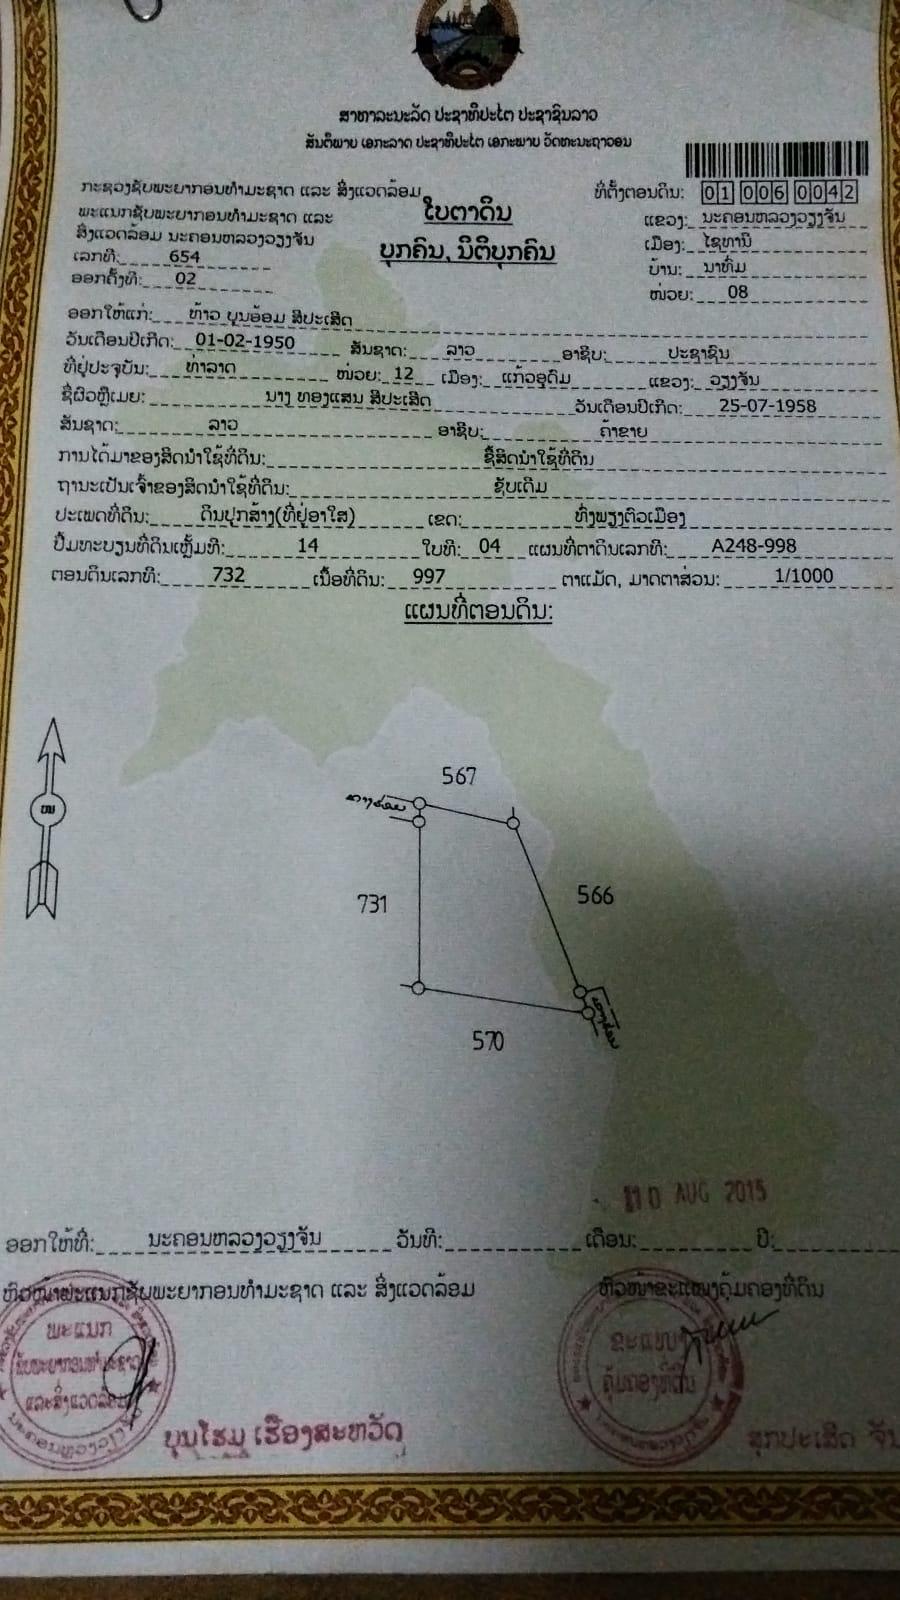 ສາທາລະນະລັດ ປະຊາທິປະໄຕ ປະຊາຊົນລາວ
ສັນຕິພາບ ເອກະລາດ ປະຊາທິປະໄຕ ເອກະພາບ ວັດທະນະຖາວອນ
ກະຊວງຊັບພະຍາກອນທຳມະຊາດ ແລະ ສິ່ງແວດລ້ອມ
ພະແນກຊັບພະຍາກອນທຳມະຊາດ ແລະ
ສິ່ງແວດລ້ອມ ນະຄອນຫລວງວຽງຈັນ
ເລກທີ: 654
ອອກຄັ້ງທີ: 02
ໃບຕາດິນ
ບຸກຄົນ, ນິຕິບຸກຄົນ
ທີ່ຕັ້ງຕອນດິນ: 01 006 0042
ແຂວງ: ນະຄອນຫລວງວຽງຈັນ
ເມືອງ: ໄຊທານີ
ບ້ານ: ນາທົ່ມ
ໜ່ວຍ: 08
ອອກໃຫ້ແກ່: ທ້າວ ບຸນອ້ອມ ສີປະເສີດ
ວັນເດືອນປີເກີດ: 01-02-1950 ສັນຊາດ: ລາວ ອາຊີບ: ປະຊາຊົນ
ທີ່ຢູ່ປະຈຸບັນ: ທ່າລາດ ໜ່ວຍ: 12 ເມືອງ: ແກ້ວອຸດົມ ແຂວງ: ວຽງຈັນ
ຊື່ຜົວຫຼືເມຍ: ນາງ ທອງແສນ ສີປະເສີດ ວັນເດືອນປີເກີດ: 25-07-1958
ສັນຊາດ: ລາວ ອາຊີບ: ຄ້າຂາຍ
ການໄດ້ມາຂອງສິດນຳໃຊ້ທີ່ດິນ: ຊື້ສິດນຳໃຊ້ທີ່ດິນ
ຖານະເປັນເຈົ້າຂອງສິດນຳໃຊ້ທີ່ດິນ: ຊັບເດີມ
ປະເພດທີ່ດິນ: ດິນປຸກສ້າງ(ທີ່ຢູ່ອາໃສ) ເຂດ: ທົ່ງພຽງຕົວເມືອງ
ປຶ້ມທະບຽນທີ່ດິນເຫຼັ້ມທີ: 14 ໃບທີ: 04 ແຜນທີ່ຕາດິນເລກທີ: A248-998
ຕອນດິນເລກທີ: 732 ເນື້ອທີ່ດິນ: 997 ຕາແມັດ, ມາດຕາສ່ວນ: 1/1000
ແຜນທີ່ຕອນດິນ:
ໜ
567
731
566
570
10 AUG 2015
ອອກໃຫ້ທີ່: ນະຄອນຫລວງວຽງຈັນ ວັນທີ: ເດືອນ: ປີ:
ຫົວໜ້າພະແນກຊັບພະຍາກອນທຳມະຊາດ ແລະ ສິ່ງແວດລ້ອມ
ຫົວໜ້າຂະແໜງຄຸ້ມຄອງທີ່ດິນ
ພະແນກ
ຊັບພະຍາກອນທຳມະຊາດ
ແລະສິ່ງແວດລ້ອມ
ນະຄອນຫຼວງວຽງຈັນ
ຂະແໜງ
ຄຸ້ມຄອງທີ່ດິນ
ບຸນໂຮມ ເຮືອງສະຫວັດ
ສຸກປະເສີດ ຈັນ